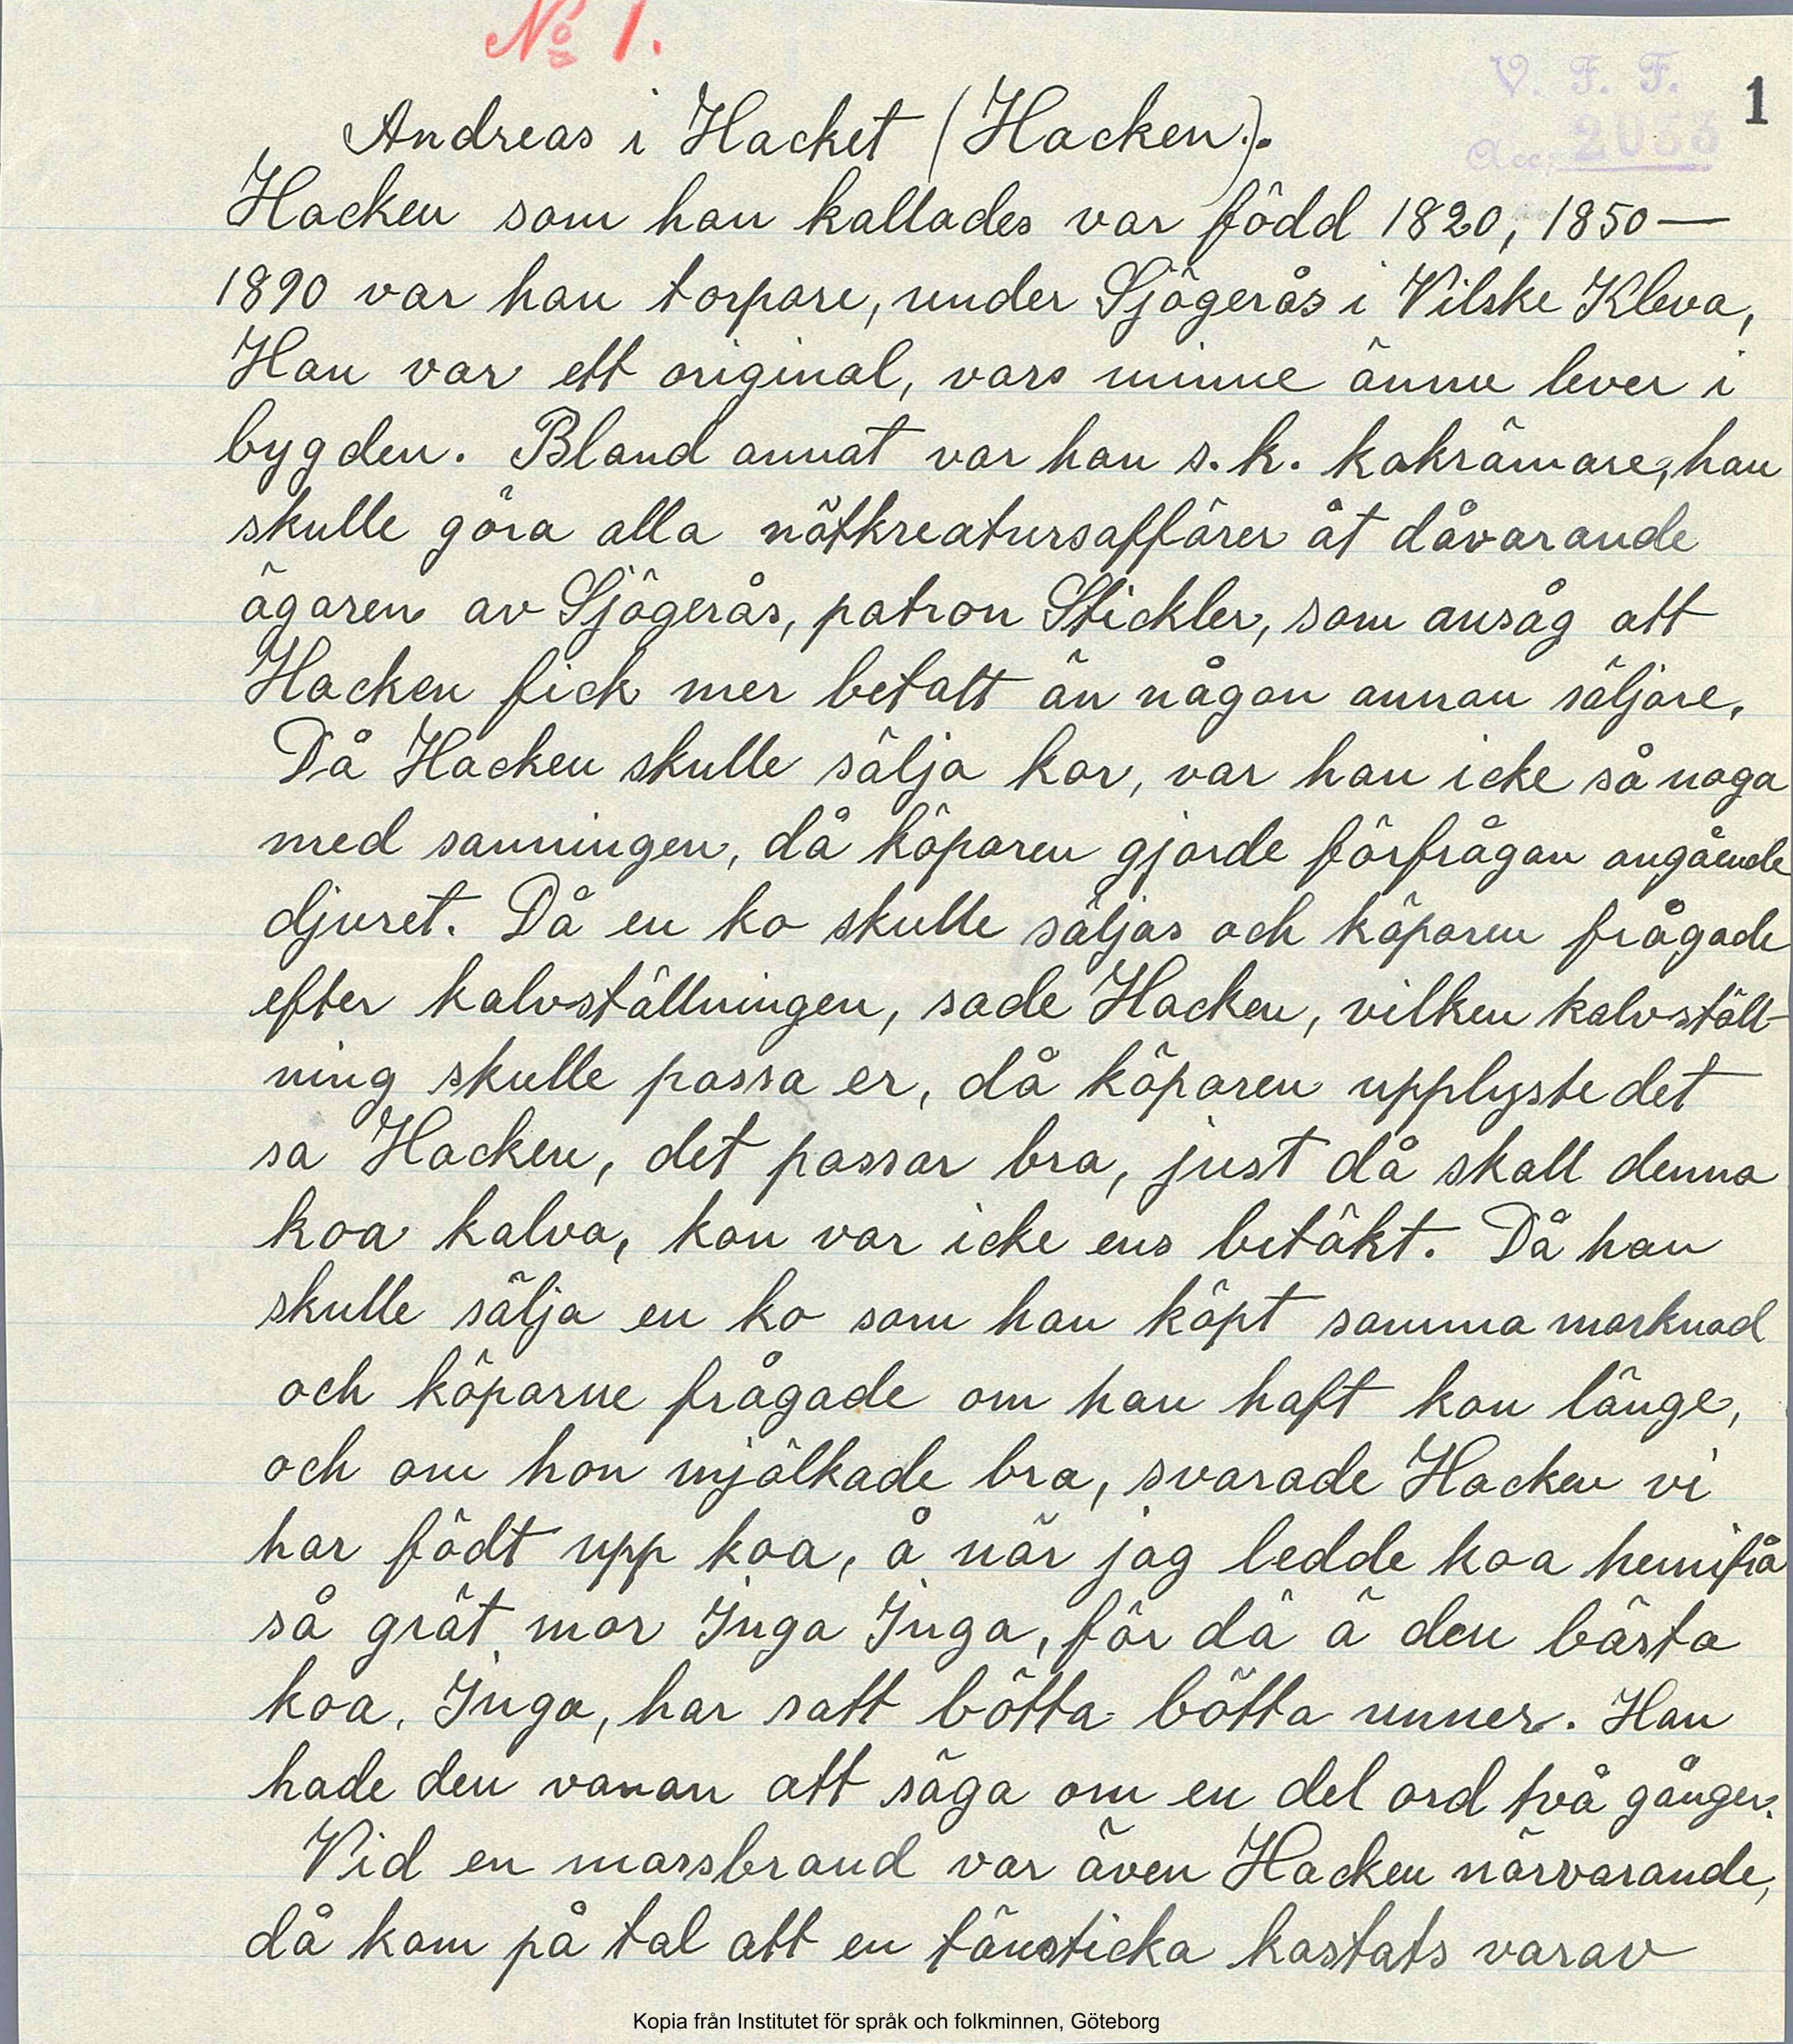 No 1.
V. F. F.
1
Acc. 2033
Andreas i Hacket (Hacken).
Hacken som han kallades var född 1820, 1850—
1890 var han torpare, under Sjögerås i Vilske Kleva,
Han var ett original, vars minne ännu lever i
bygden. Bland annat var han s.k. kokrämare, han
skulle göra alla nötkreatursaffärer åt dåvarande
ägaren av Sjögerås, patron Stickler, som ansåg att
Hacken fick mer betalt än någon annan säljare.
Då Hacken skulle sälja kor, var han icke så noga
med sanningen, då köparen gjorde förfrågan angående
djuret. Då en ko skulle säljas och köparen frågade
efter kalvställningen, sade Hacken, vilken kalvställ-
ning skulle passa er, då köparen upplyste det
sa Hacken, det passar bra, just då skall denna
koa kalva, kon var icke ens betäkt. Då han
skulle sälja en ko som han köpt samma marknad
och köparne frågade om han haft kon länge,
och om hon mjölkade bra, svarade Hacken vi
har födt upp koa, å när jag ledde koa hemifrå
så grät mor Inga Inga, för dä ä den bästa
koa, Inga, har satt bötta bötta unner. Han
hade den vanan att säga om en del ord två gånger.
Vid en mossbrand var även Hacken närvarande,
då kom på tal att en tänsticka kastats varav
Kopia från Institutet för språk och folkminnen, Göteborg